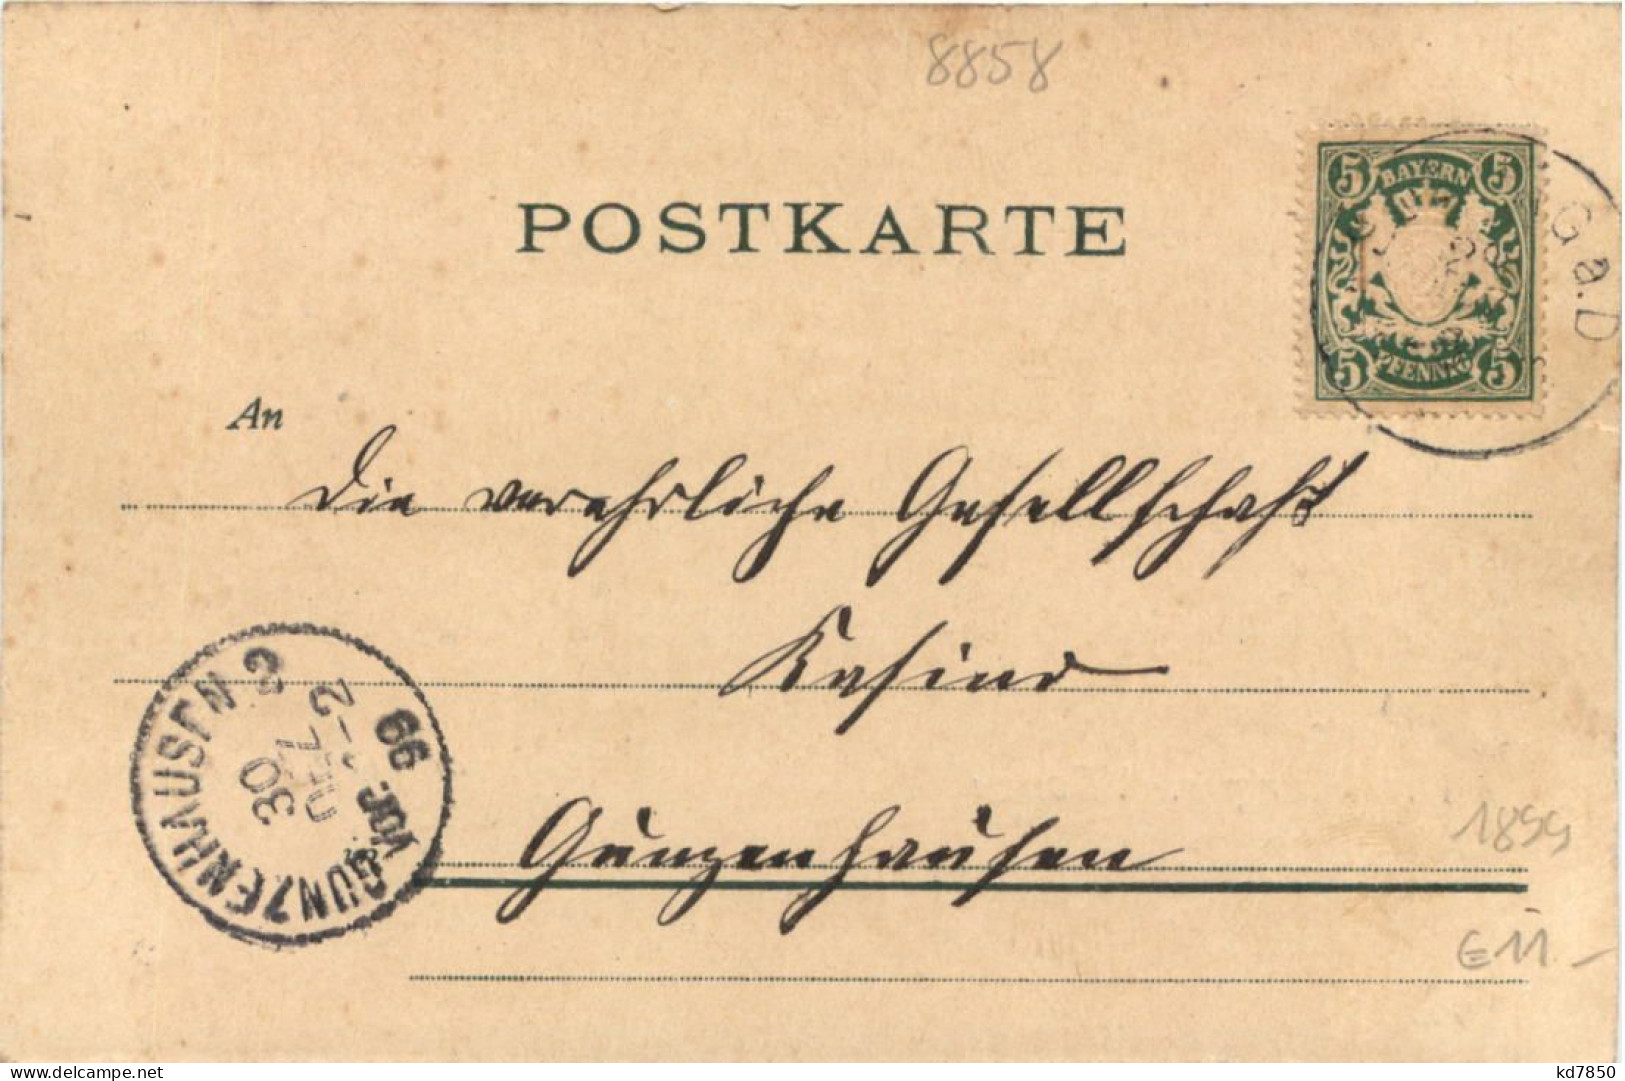 8858
POSTKARTE
5 BAYERN 5
5 PFENNIG 5
G a.D
An
Die verehrliche Gesellschaft
Kasino
Gunzenhausen
GUNZENHAUSEN 2
30
DEZ
VOR. 1-2
99
1899
€ 11.-
kd7850